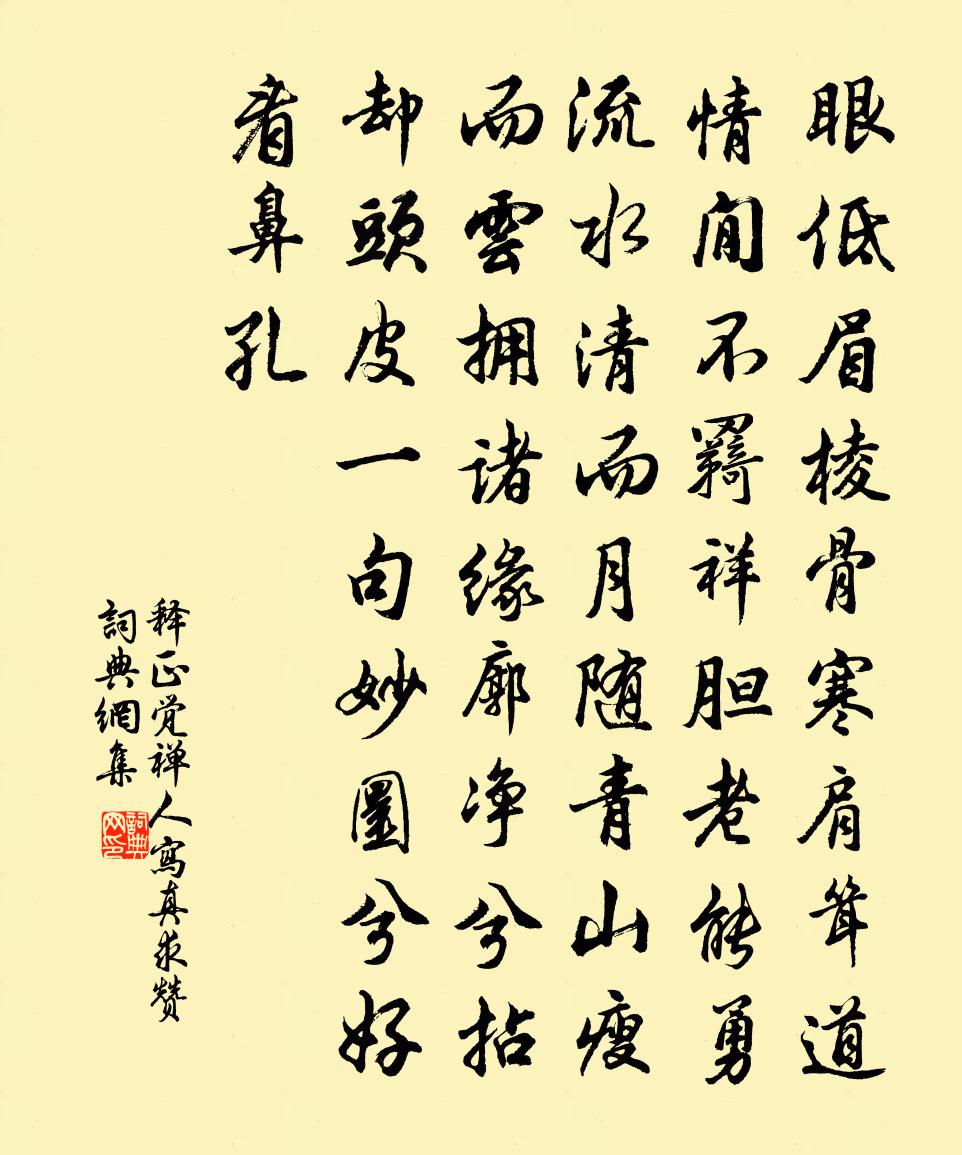 眼低眉棱骨寒肩耸道
情闲不羇祥胆老能勇
流水清而月随青山瘦
而雲拥诸缘廓净兮拈
却頭皮一句妙圆兮好
看鼻孔
释正觉禅人寫真求赞
詞典網集
詞典网印